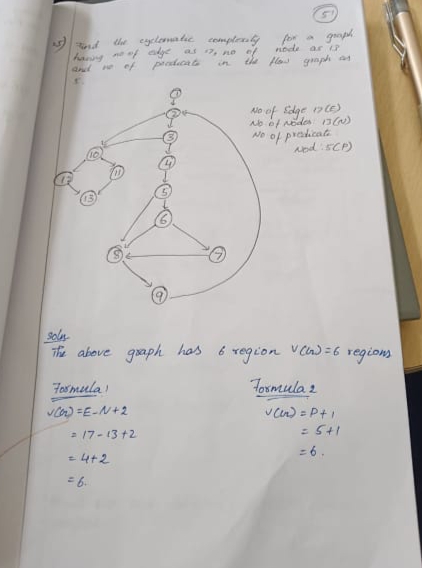 5
5) Find the cyclomatic complexity for a graph
having no of edge as 17, no of node as 13
and no of predicate in the flow graph as
5.
1
2
3
10
4
12
11
5
13
6
8
7
9
No of Edge 17(E)
No of Nodes: 13(N)
No of predicate
Nod : 5(P)
Soln
The above graph has 6 region V(G)=6 regions
Formula 1
V(G) = E-N+2
= 17-13+2
= 4+2
= 6.
Formula 2
V(G) = P+1
= 5+1
= 6.